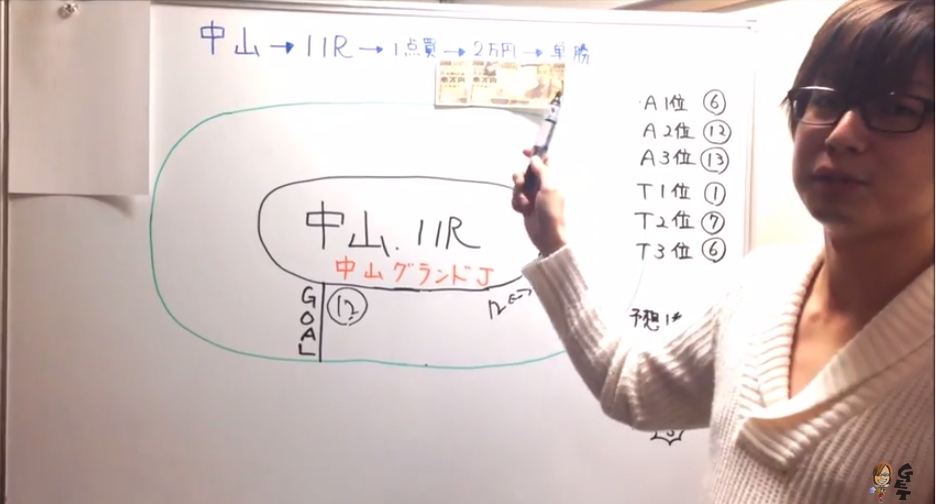 中山→11R→1点買→2万円→単勝
A1位 ⑥
A2位 ⑫
A3位 ⑬
T1位 ①
T2位 ⑦
T3位 ⑥
中山.11R
中山グランドJ
GOAL
⑫
12
予想
GET